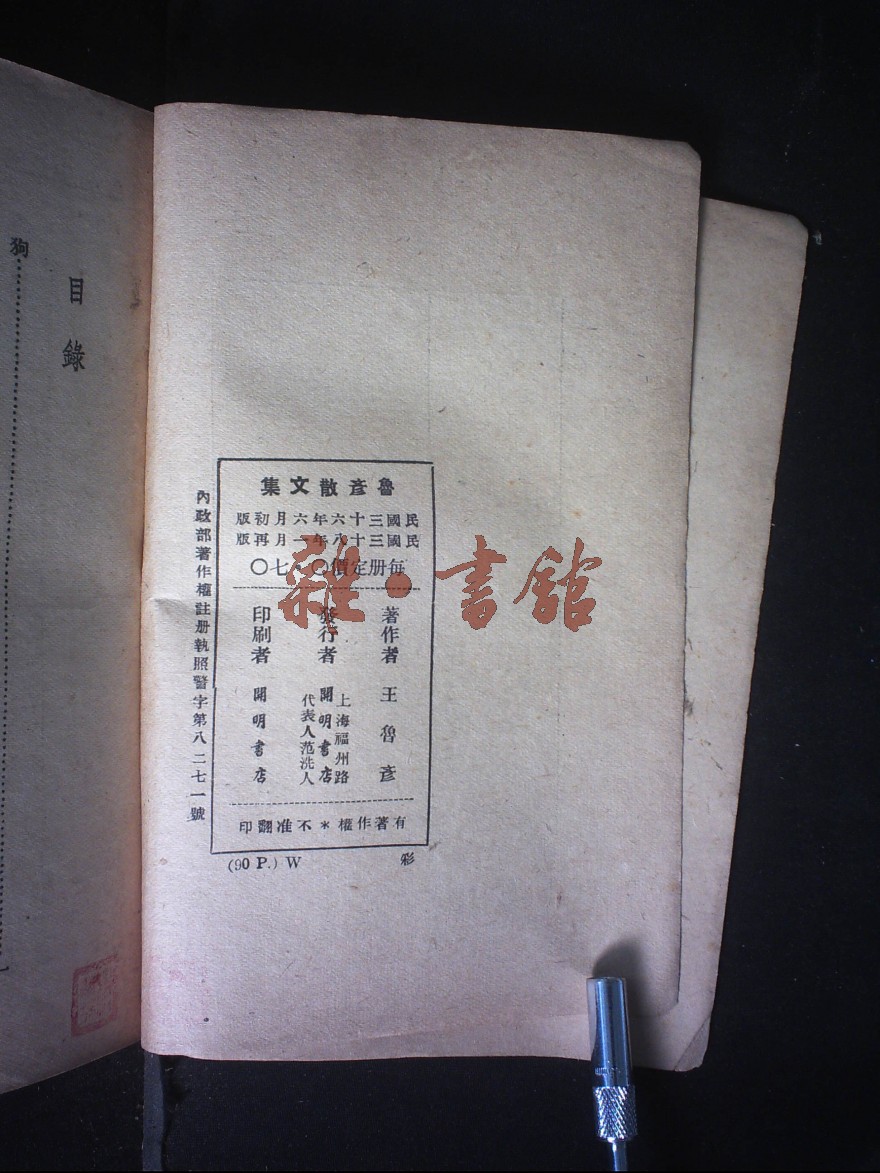 魯彥散文集
民國三十六年六月初版
民國三十八年一月再版
每册定價〇·七〇
著作者 王魯彥
發行者 開明書店
上海福州路
代表人范洗人
印刷者 開明書店
有著作權＊不准翻印
內政部著作權註册執照警字第八二七一號
(90 P.) W
彩
目錄
狗
雜·書館